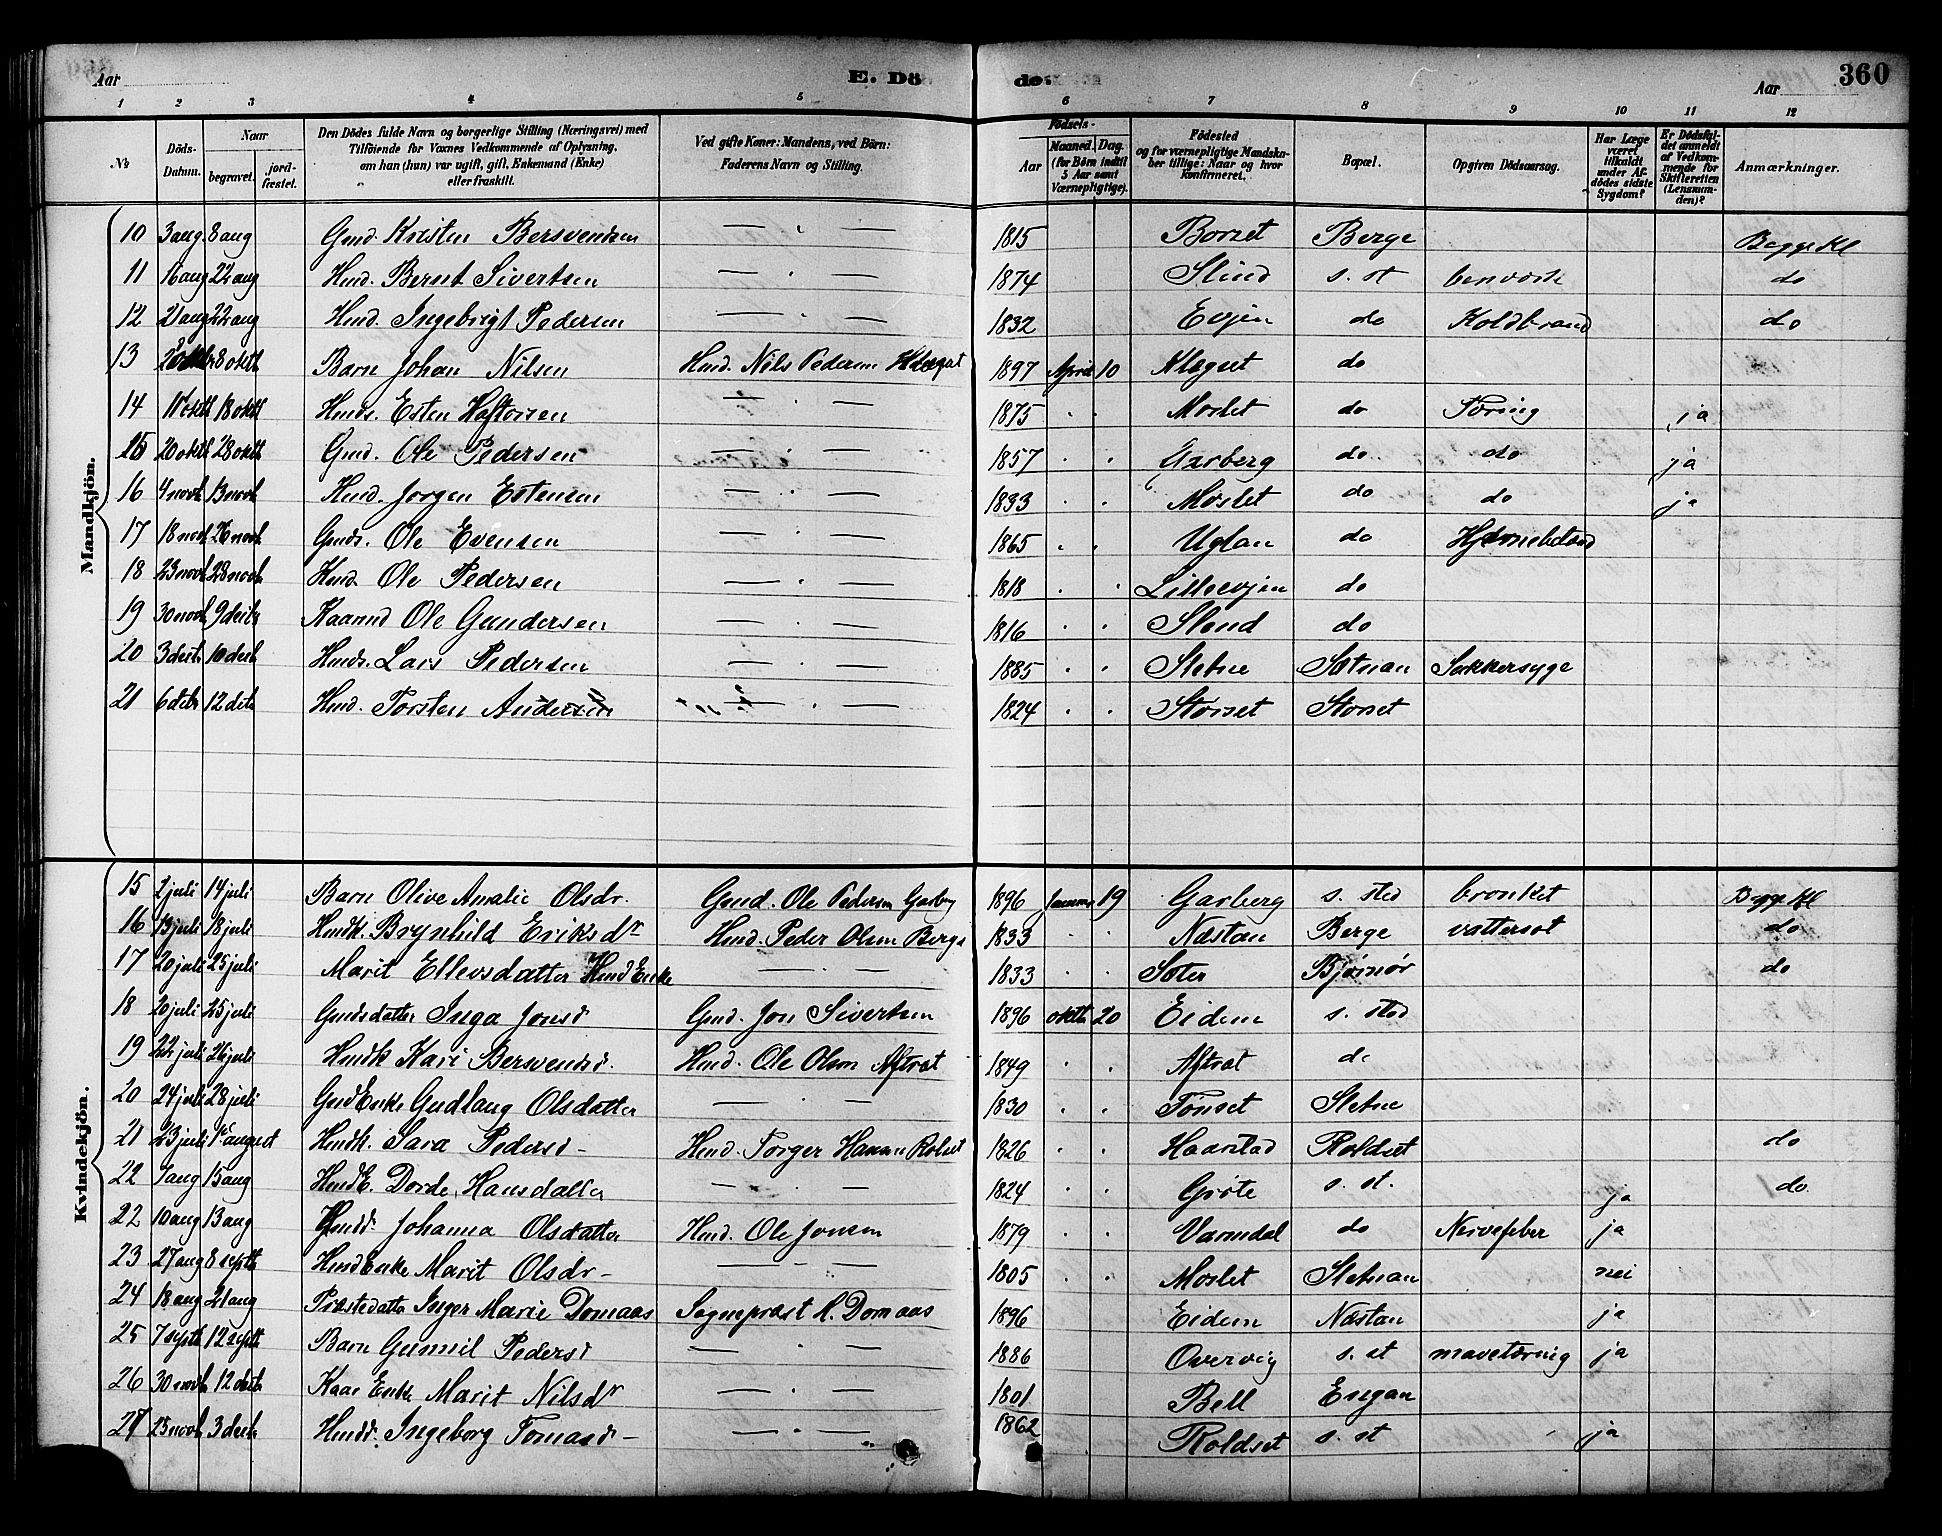 Aar
E. Dö
de.
Aar
360
1 2 3 4 5 6 7 8 9 10 11 12
No
Döds-Datum.
Naar
begravet.
jord-fæstet.
Den Dödes fulde Navn og borgerlige Stilling (Næringsvei) med Tilföiende for Voxnes Vedkommende af Oplysning, om han (hun) var ugift, gift, Enkemand (Enke) eller fraskilt.
Ved gifte Koner: Mandens, ved Börn: Faderens Navn og Stilling.
Födsels-
Aar
Maaned. Dag.
(for Börn indtil 5 Aar samt Værnepligtige).
Födested og for værnepligtige Mandskaber tillige: Naar og hvor Konfirmeret.
Bopæl.
Opgiven Dödsaarsag.
Har Læge været tilkaldt under Afdödes sidste Sygdom?
Er Dödsfaldet anmeldt af Vedkommende for Skifteretten (Lensmanden)?
Anmærkninger.
Mandkjön.
10 3 aug. 8 aug Gmd. Kristen Bersvendsen — " — 1815 Borset Berge Begge Kl
11 16 aug 22 aug Hmd. Bernt Sivertsen — " — 1874 Slind s. st do
12 21 aug 22 aug Hmd. Ingebrigt Pedersen — " — 1832 Evjen do Koldbrand do
13 8 oktb Barn Johan Nilsen Hmd. Nils Pedersen 1897 April 10 Klegset do
14 11 oktb 18 oktb Hmds. Esten Haftorsen — " — 1875 " " Moslet do Tæring ja
15 20 oktb 28 oktb Gmd. Ole Pedersen — " — 1857 " " Garberg do do ja
16 4 novb 13 novb Hmd. Jorgen Estensen — " — 1833 " " Moslet do do ja
17 18 novb 26 novb Gmds. Ole Evensen — " — 1865 " " Uglan do
18 23 novb 28 novb Hmd. Ole Pedersen — " — 1818 " " Lilleevjen do
19 30 novb 9 decb Kaarmd Ole Gundersen — " — 1816 " " Slend do
20 3 decb 10 decb Hmds. Lars Pedersen — " — 1885 " " Sletne Sætnan Sukkersyge
21 6 decb 12 decb Hmd. Torsten Andersen — " — 1824 " " Storset Storset
Kvindekjön.
15 2 juli 14 juli Barn Olive Amalie Olsdr. Gmd. Ole Pedersen Garberg 1896 Januar 19 Garberg s. sted bronket Begge Kl
16 13 juli 18 juli Hmdk. Brynhild Eriksdr Hmd. Peder Olsen Berge 1833 " " Næstan Berge vattersot do
17 20 juli 25 juli Marit Ellevsdatter Hmd Enke — " — 1833 " " Sæter Bjørnør do
18 20 juli 25 juli Gmdsdatter Inga Jonsd Gmd. Jon Sivertsen 1896 oktb 20 Eidem s. sted
19 22 juli 26 juli Hmdk Kari Bersvendsd. Hmd. Ole Olsen Aftret 1849 " " Aftret do
20 24 juli 28 juli Gmd Enke Gudlaug Olsdatter — " — 1830 " " Tønset Sletne
21 23 juli 1st august Hmdk. Sara Pedersd- Hmd. Torger Hansen Rolset 1826 " " Haarstad Roldset do
22 7 aug 15 aug Hmd E. Dorde Hansdatter — " — 1824 " " Grøte s. st. ja do
22 10 aug 13 aug Hmdd. Johanna Olsdatter Hmd. Ole Jonsen 1879 " " Varmdal do Nervefeber ja
23 27 aug 8 septb Hmd Enke Marit Olsdr- — " — 1805 " " Moslet Sletnan nei
24 18 aug 21 aug Præstedatter Inger Marie Domaas Sognepræst H. Domaas 1896 Eidem Næstan ja
25 7 septb 12 septb Barn Gunnil Pedersd — " — 1886 Overvig s. st mavetærnig ja
26 30 novb 12 decb Kaar Enke Marit Nilsdr — " — 1801 Bell Engan
27 25 novb 3 decb Hmdd. Ingeborg Tomasd- — " — 1862 Roldset s. st ja